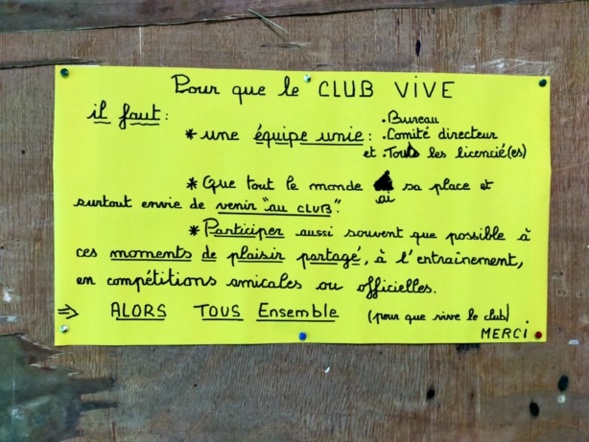 Pour que le CLUB VIVE
il faut:
* une équipe unie: . Bureau
. Comité directeur
et . Tous les licencié(es)
* Que tout le monde ai sa place et
surtout envie de venir "au CLUB".
* Participer aussi souvent que possible à
ces moments de plaisir partagé, à l'entraînement,
en compétitions amicales ou officielles.
⇒ ALORS TOUS Ensemble (pour que vive le club)
MERCI